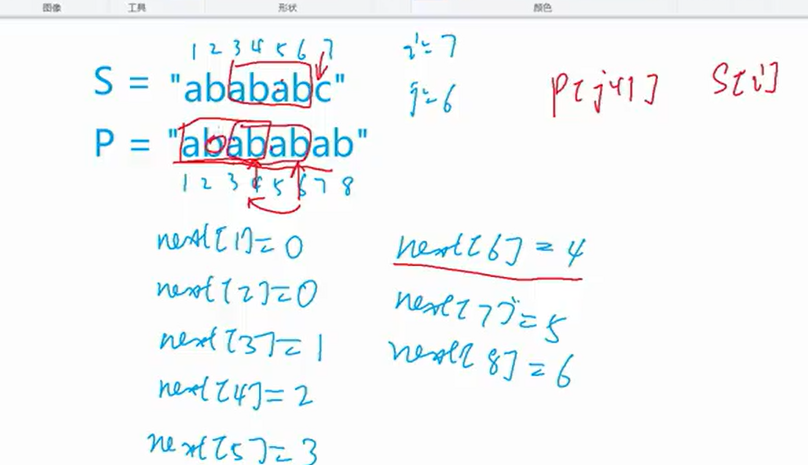 图像 工具 形状 颜色
1 2 3 4 5 6 7
S = "abababc"
i=7
j=6
P[j+1] S[i]
P = "abababab"
1 2 3 4 5 6 7 8
next[1]=0
next[2]=0
next[3]=1
next[4]=2
next[5]=3
next[6]=4
next[7]=5
next[8]=6